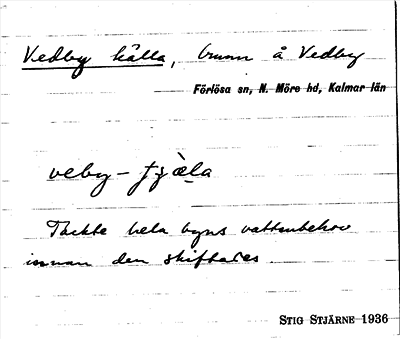 Vedby källa, brunn å Vedby
Förlösa sn, N. Möre hd, Kalmar län
veby - tjäla
Täckte hela byns vattenbehov
innan den skiftades.
STIG STJÄRNE 1936